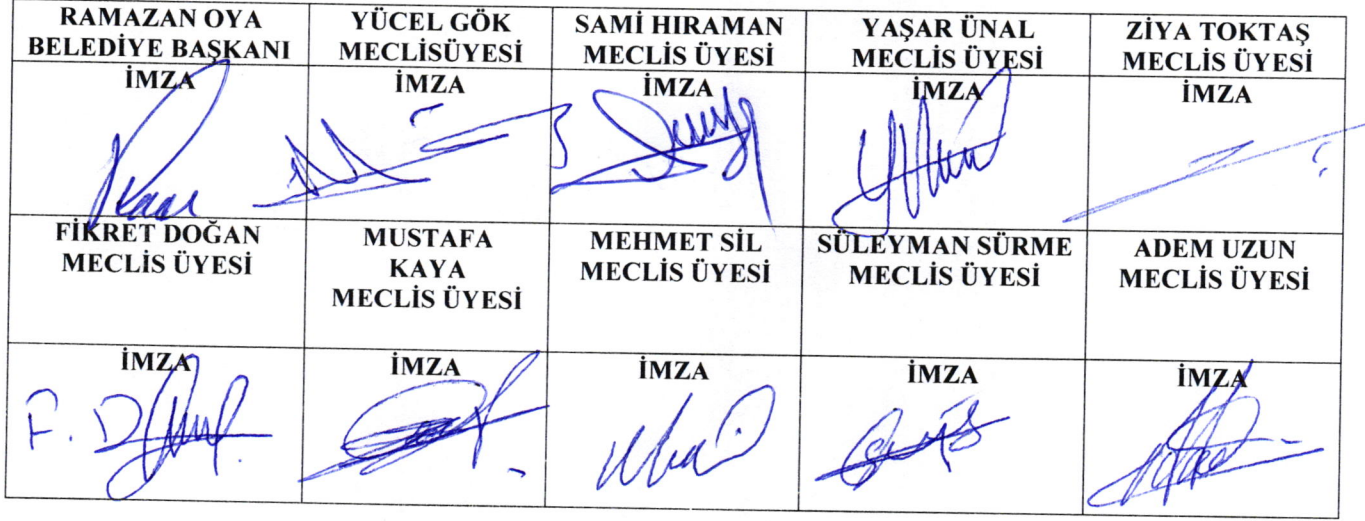 RAMAZAN OYA
BELEDİYE BAŞKANI
YÜCEL GÖK
MECLİSÜYESİ
SAMİ HIRAMAN
MECLİS ÜYESİ
YAŞAR ÜNAL
MECLİS ÜYESİ
ZİYA TOKTAŞ
MECLİS ÜYESİ
İMZA
İMZA
İMZA
İMZA
İMZA
FİKRET DOĞAN
MECLİS ÜYESİ
MUSTAFA
KAYA
MECLİS ÜYESİ
MEHMET SİL
MECLİS ÜYESİ
SÜLEYMAN SÜRME
MECLİS ÜYESİ
ADEM UZUN
MECLİS ÜYESİ
İMZA
İMZA
İMZA
İMZA
İMZA
F. D